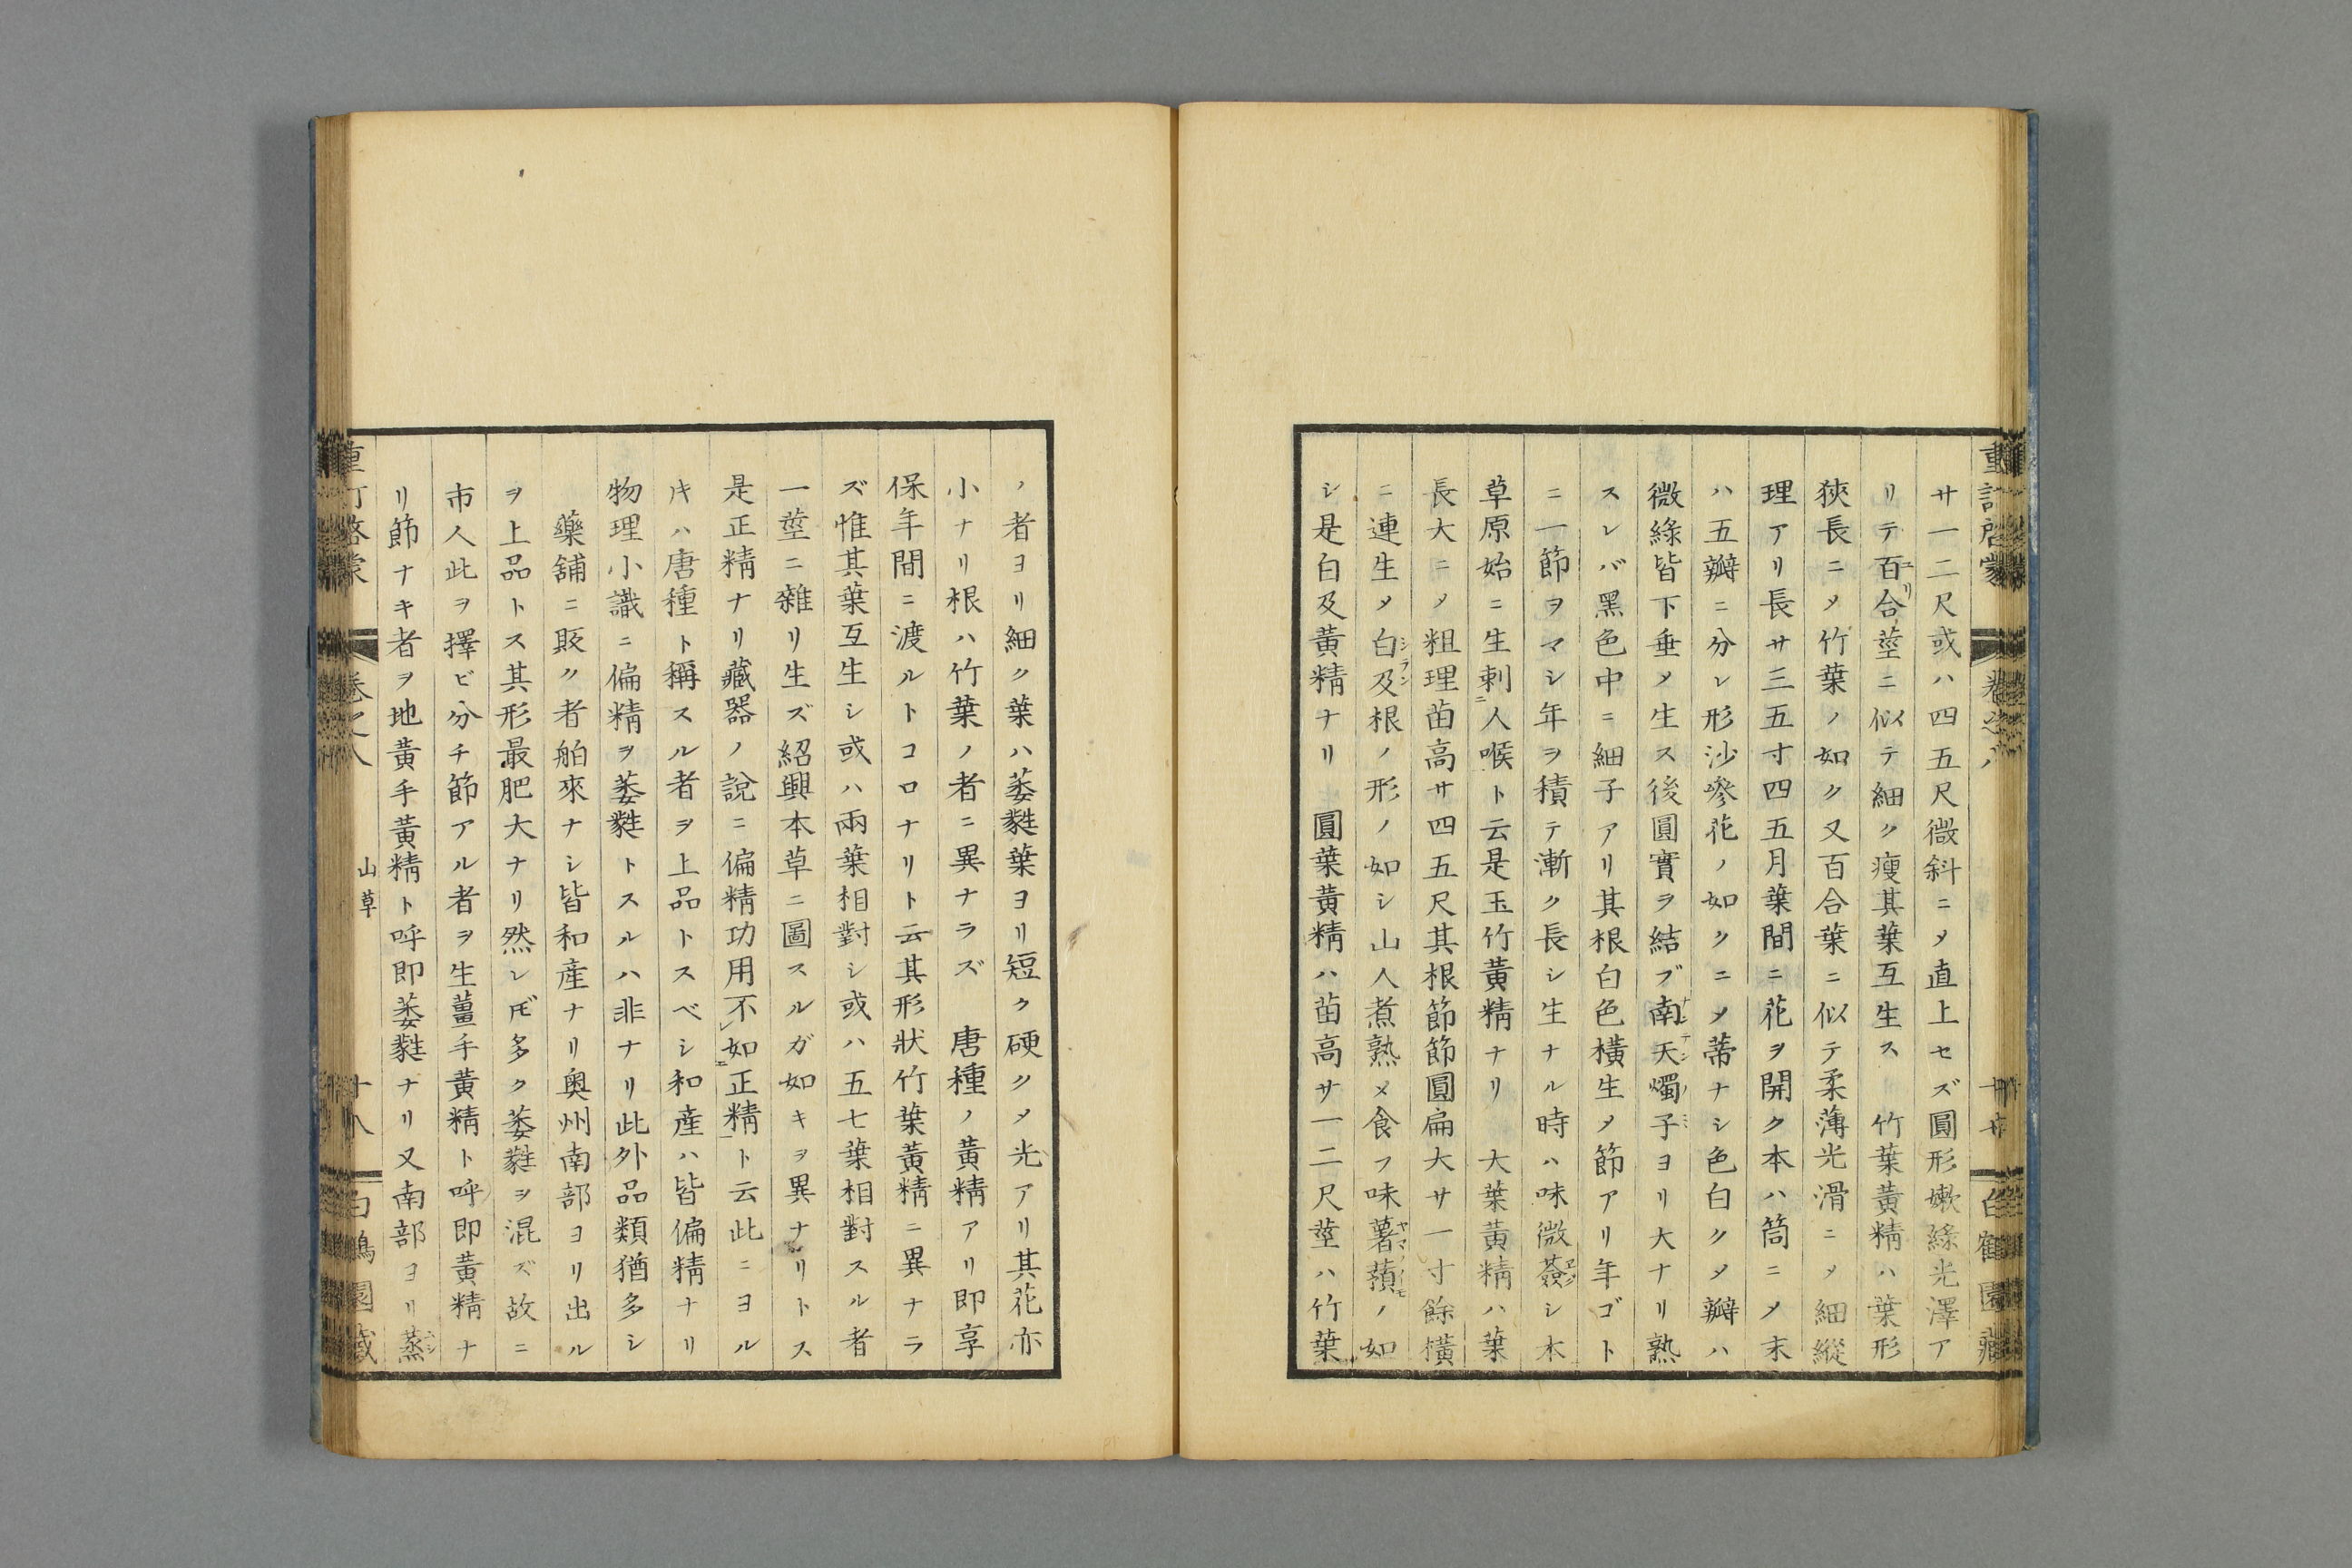 サ一二尺或ハ四五尺微斜ニメ直上セズ圓形嫩緑光澤ア
リテ百合莖ニ似テ細ク瘦其葉互生ス　竹葉黃精ハ葉形
狹長ニメ竹葉ノ如ク又百合葉ニ似テ柔薄光滑ニメ細縱
理アリ長サ三五寸四五月葉間ニ花ヲ開ク本ハ筒ニメ末
ハ五瓣ニ分レ形沙參花ノ如クニメ蒂ナシ色白クメ瓣ハ
微綠皆下垂メ生ス後圓實ヲ結ブ南天燭子ヨリ大ナリ熟
スレバ黑色中ニ細子アリ其根白色橫生メ節アリ年ゴト
ニ一節ヲマシ年ヲ積テ漸ク長シ生ナル時ハ味微薟シ本
草原始ニ生刺人喉ト云是玉竹黃精ナリ　大葉黃精ハ葉
長大ニメ粗理苗高サ四五尺其根節節圓扁大サ一寸餘橫
ニ連生メ白及根ノ形ノ如シ山人煮熟メ食フ味薯蕷ノ如
シ是白及黃精ナリ　圓葉黃精ハ苗高サ一二尺莖ハ竹葉
ノ者ヨリ細ク葉ハ萎蕤葉ヨリ短ク硬クメ光アリ其花亦
小ナリ根ハ竹葉ノ者ニ異ナラズ　唐種ノ黃精アリ即享
保年間ニ渡ルトコロナリト云其形狀竹葉黃精ニ異ナラ
ズ惟其葉互生シ或ハ兩葉相對シ或ハ五七葉相對スル者
一莖ニ雜リ生ズ紹興本草ニ圖スルガ如キヲ異ナリトス
是正精ナリ藏器ノ說ニ偏精功用不如正精ト云此ニヨル
キハ唐種ト稱スル者ヲ上品トスベシ和產ハ皆偏精ナリ
物理小識ニ偏精ヲ萎蕤トスルハ非ナリ此外品類猶多シ
藥舖ニ販ク者舶來ナシ皆和產ナリ奧州南部ヨリ出ル
ヲ上品トス其形最肥大ナリ然レ𪜈多ク萎蕤ヲ混ズ故ニ
市人此ヲ擇ビ分チ節アル者ヲ生薑手黃精ト呼即黃精ナ
リ節ナキ者ヲ地黃手黃精ト呼即萎蕤ナリ又南部ヨリ蒸
山草